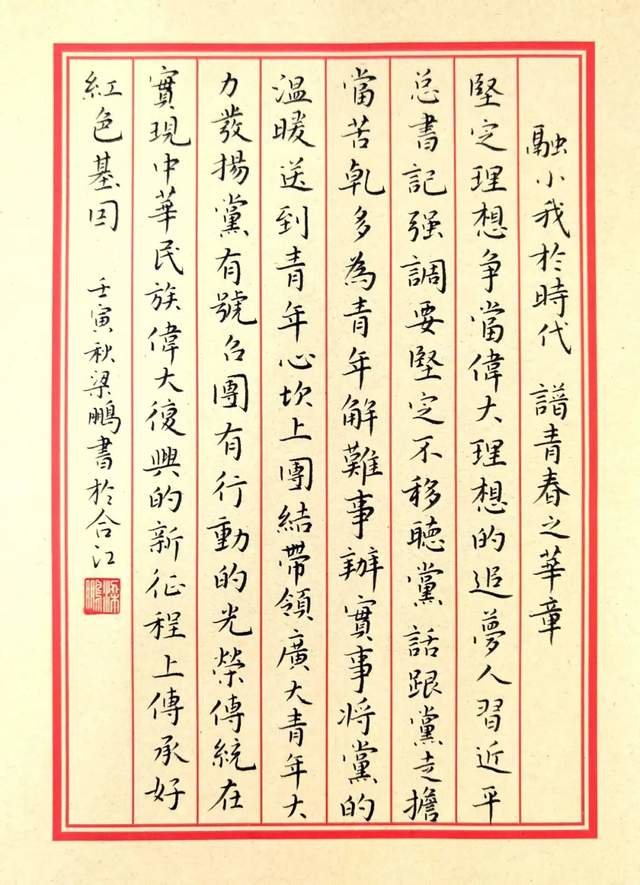 融小我於時代 譜青春之華章
堅定理想争當偉大理想的追夢人習近平
总書記强調要堅定不移聽黨話跟黨走擔
當苦乹多為青年解難事辦實事将黨的
温暖送到青年心坎上團結帶領廣大青年大
力發揚黨有號召團有行動的光榮傳統在
實現中華民族偉大復興的新征程上傳承好
紅色基因 壬寅秋梁鵬書於合江
梁鵬